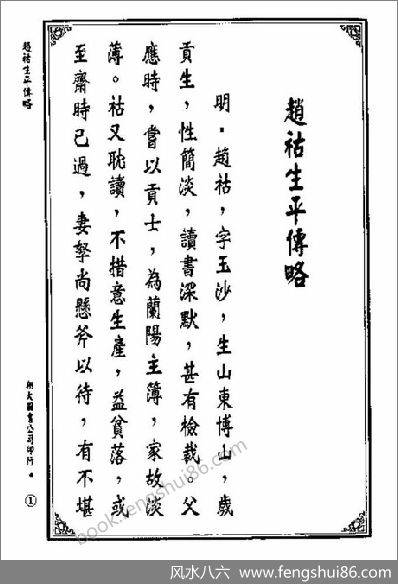 趙祜生平傳略
明·趙祜，字玉沙，生山東博山，歲
貢生，性簡淡，讀書深默，甚有檢裁。父
應時，嘗以貢士，為蘭陽主簿，家故淡
薄。祜又耽讀，不措意生產，益貧落，或
至齋時已過，妻孥尚懸斧以待，有不堪
趙祜生平傳略
翔大圖書公司印行
①
book.fengshui86.com
风水八六 www.fengshui86.com